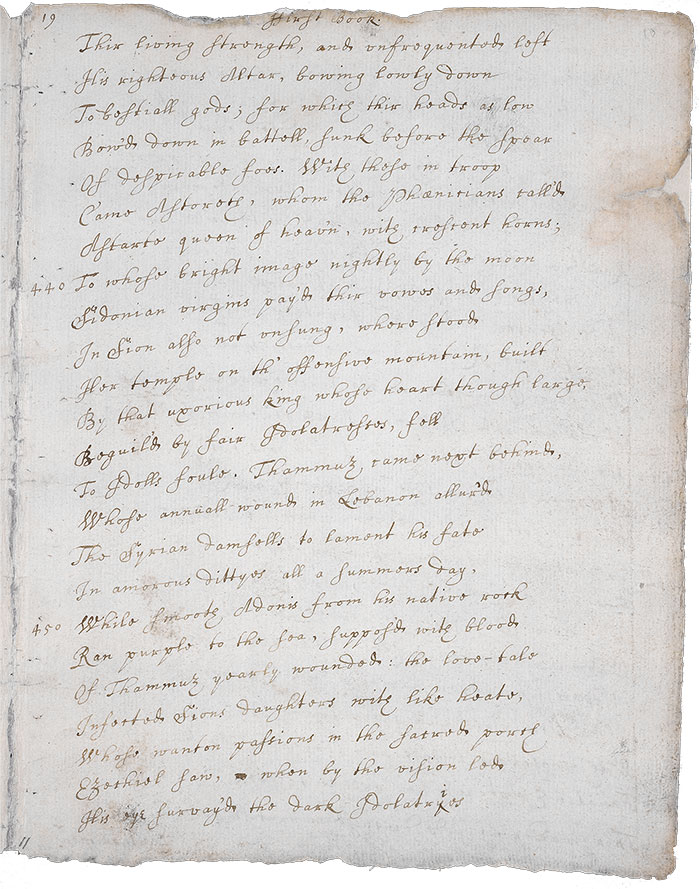 19 First Book. 18
Thir living strength, and vnfrequented left
His righteous Altar, bowing lowly down
To bestiall gods; for which thir heads as low
Bow'd down in battell, sunk before the spear
Of despicable foes. With these in troop
Came Astoreth, whom the Phœnicians call'd
Astarte queen of heav'n, with crescent horns;
440 To whose bright image nightly by the moon
Sidonian virgins pay'd thir vowes and songs,
In Sion also not vnsung, where stood
Her temple on th' offensive mountain, built
By that uxorious king whose heart though large,
Beguil'd by fair Idolatresses, fell
To Idolls foule. Thammuz came next behind,
Whose annuall wound in Lebanon allur'd
The Syrian damsells to lament his fate
In amorous dittyes all a summers day,
450 While smooth Adonis from his native rock
Ran purple to the sea, suppos'd with blood
Of Thammuz yearly wounded: the love-tale
Infected Sions daughters with like heate,
Whose wanton passions in the sacred porch
Ezekiel saw, when by the vision led
His eye survay'd the dark Idolatries
11